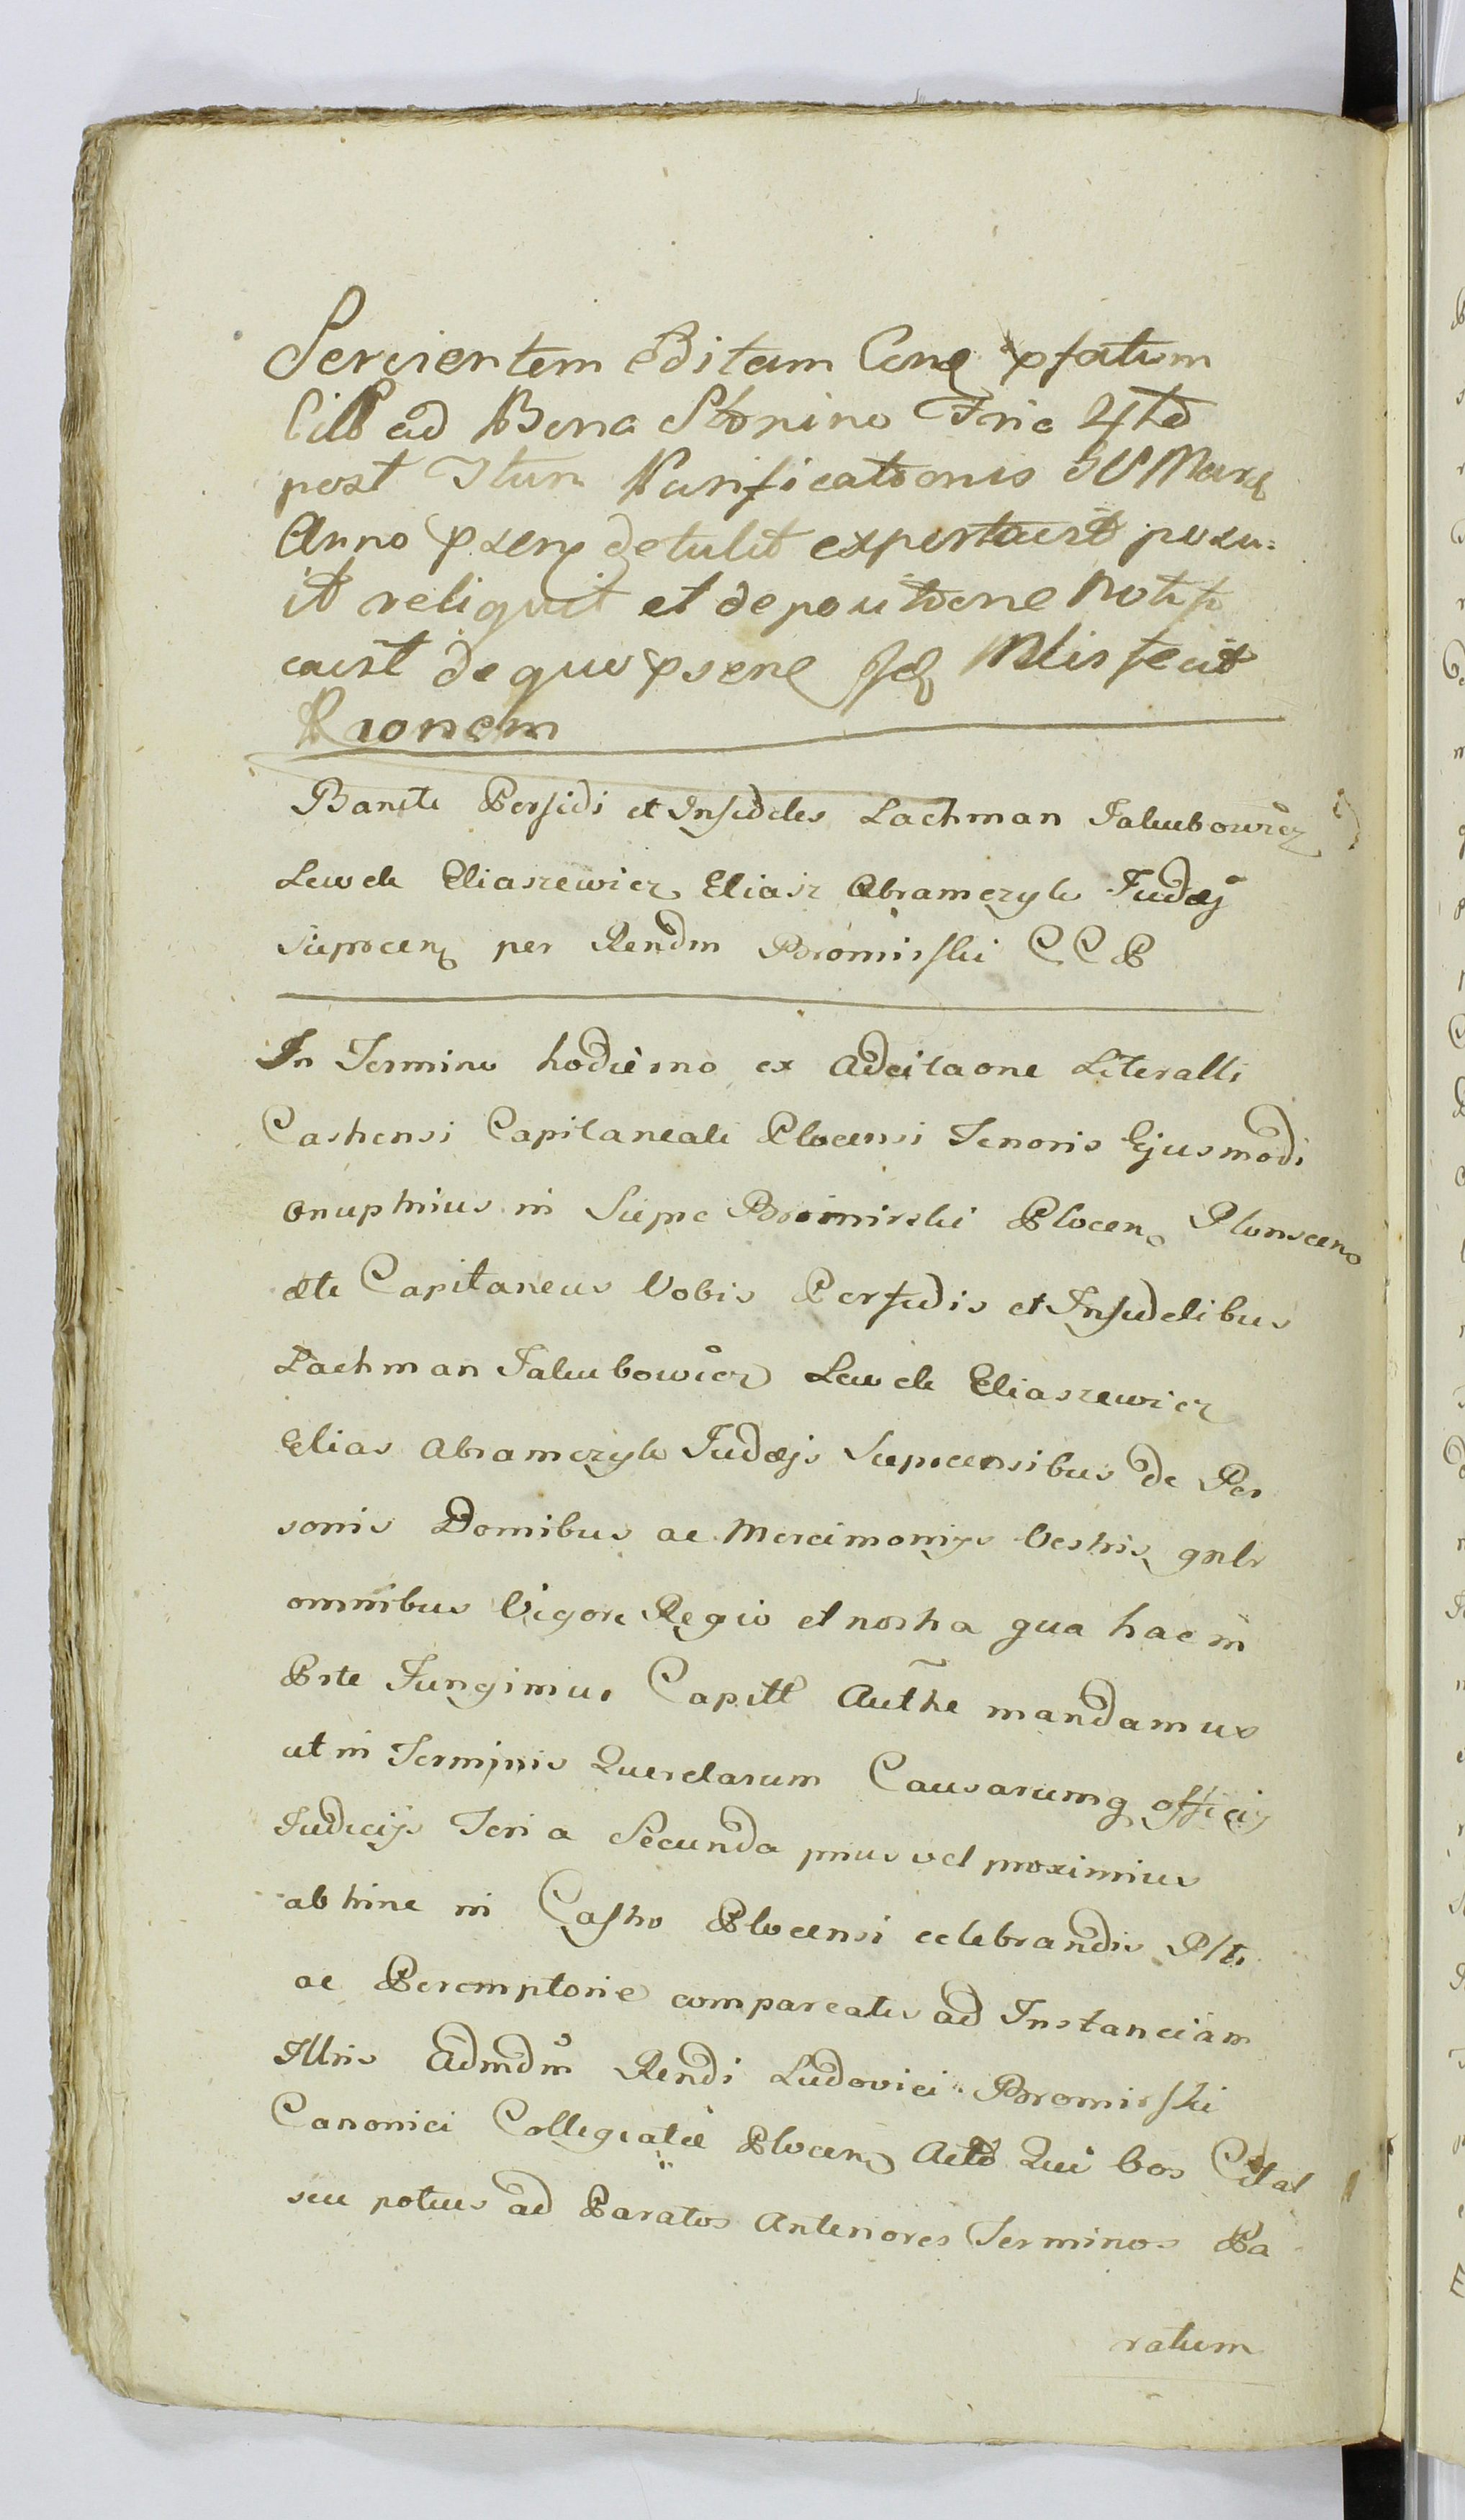 Servientem Editam Conq psatum
Citt ad Bona Słonino Fria 4ta
post Ftum Purificationis BVMariæ
Anno psenq detulit exportavit posu=
it reliquit et de positione notifi
cavit de quo psene Jd Mlis fecit
Rionem
Banite Perfidi et Infideles Lachman Jakubowicz
Lewek Eliaszewicz Eliasz Abramczyk Judæj
Sieprcenq per Rendm Bromirski C C P
In Termino hodierno ex Adcitaone Literalli
Castrensi Capitaneali Plocensi Tenoris Ejusmodi
Onuphrius in Sieprc Bromirski Plocenq Plonscenq
etc Capitaneus Vobis Perfidis et Infidelibus
Lachman Jakubowicz Lewek Eliaszewicz
Elias Abramczyk Judæjs Sieprcensibus de Per
sonis Domibus ac Mercimonijs Vestris gnlr
omnibus Vigore Regio et nostra qua hac in
Prte Fungimur Capitl Authe mandamus
ut in Terminis Querelarum Causarumq officij
Judicijs Feria Secunda prius vel proximius
abhinc in Castro Plocensi celebrandis Plr
ac Peremptorie compareatis ad Instanciam
Illris Admdm Rendi Ludovici Bromirski
Canonici Collegiatæ Plocenq Acto Qui Vos Citat
seu potius ad Paratos Anteriores Terminos Pa
ratum